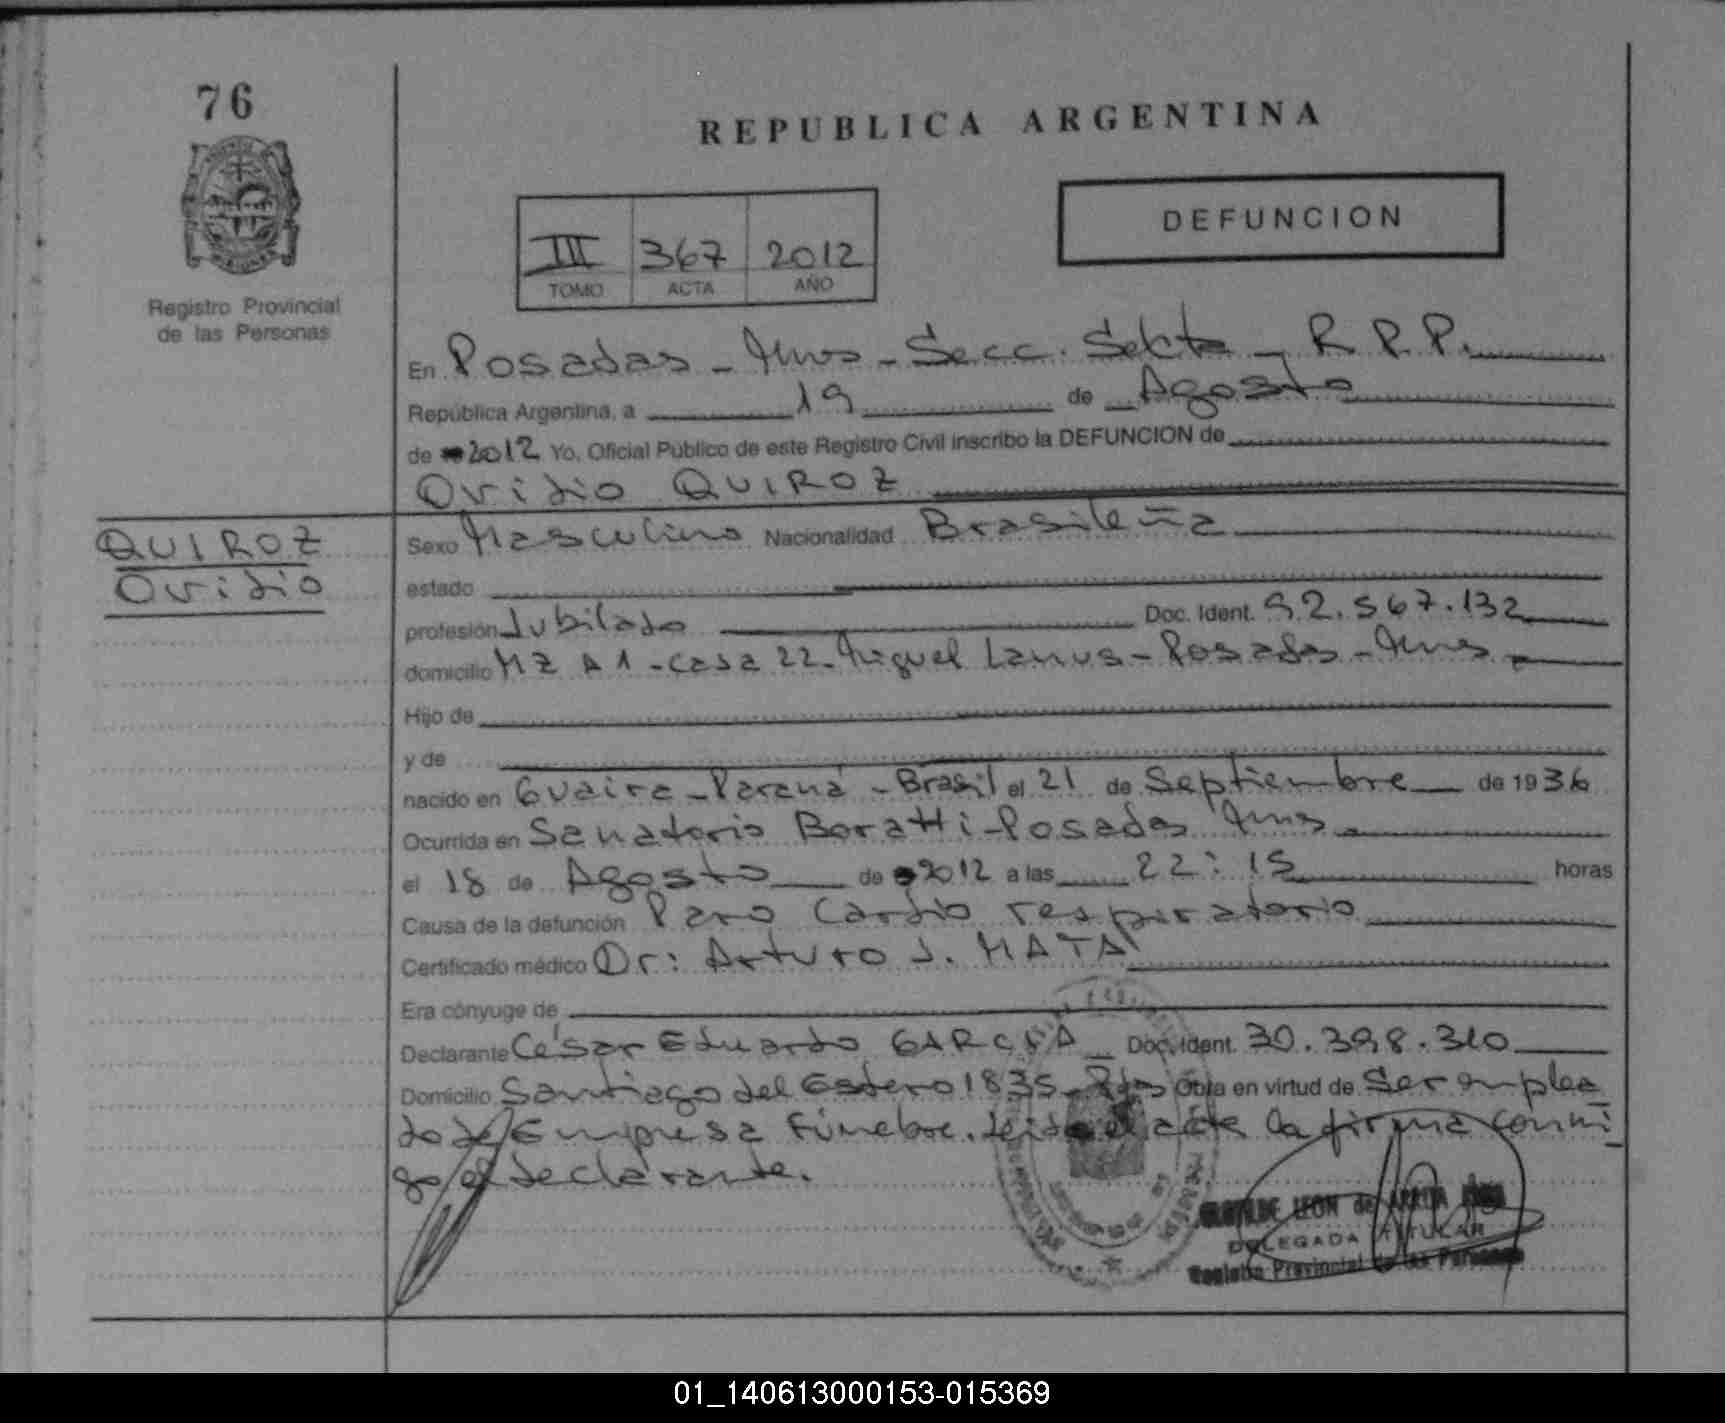 76
REPUBLICA ARGENTINA
DEFUNCION
III 367 2012
TOMO ACTA AÑO
Registro Provincial
de las Personas
En Posadas - Mnes - Secc. Sexta - R.P.P.
República Argentina, a 19 de Agosto
de 2012 Yo, Oficial Público de este Registro Civil inscribo la DEFUNCION de
Ovidio QUIROZ
QUIROZ
Ovidio
Sexo Masculino Nacionalidad Brasileña
estado
profesión Jubilado Doc. Ident. 92.567.132
domicilio MZ A1 - casa 22 - Miguel Lanus - Posadas - Mnes
Hijo de
y de
nacido en Guaira - Paraná - Brasil el 21 de Septiembre de 1936
Ocurrida en Sanatorio Boratti - Posadas Mnes.
el 18 de Agosto de 2012 a las 22:15 horas
Causa de la defunción Paro Cardio respiratorio
Certificado médico Dr: Arturo J. MATA
Era cónyuge de
Declarante César Eduardo GARCIA Doc. Ident. 30.398.310
Domicilio Santiago del Estero 1835 - Pdas Obra en virtud de Ser emplea
do de Empresa Fúnebre. Leida el acta la firma conmi
go el declarante.
LEON de
DELEGADA TITULAR
Registro Provincial de las Personas
01_140613000153-015369